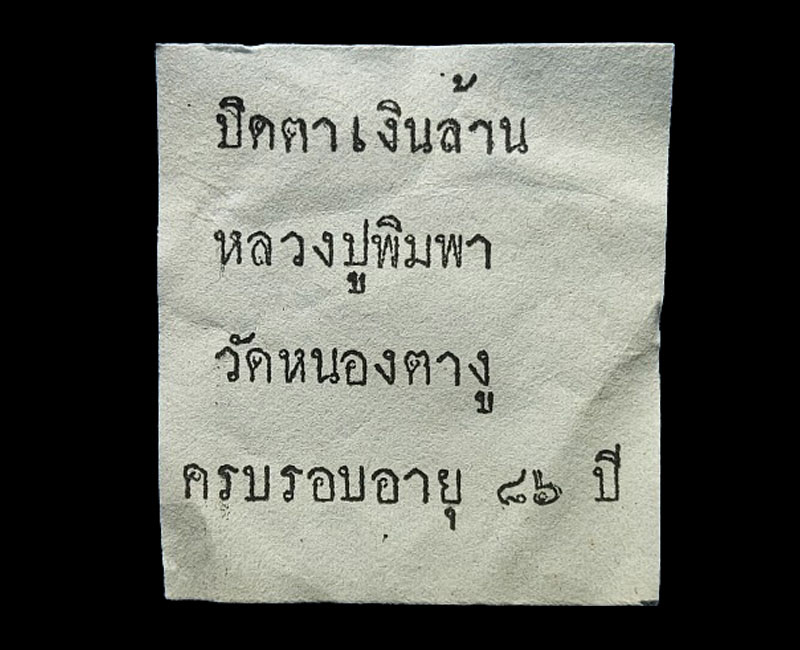 ปิดตาเงินล้าน
หลวงปู่พิมพา
วัดหนองตางู
ครบรอบอายุ ๘๖ ปี